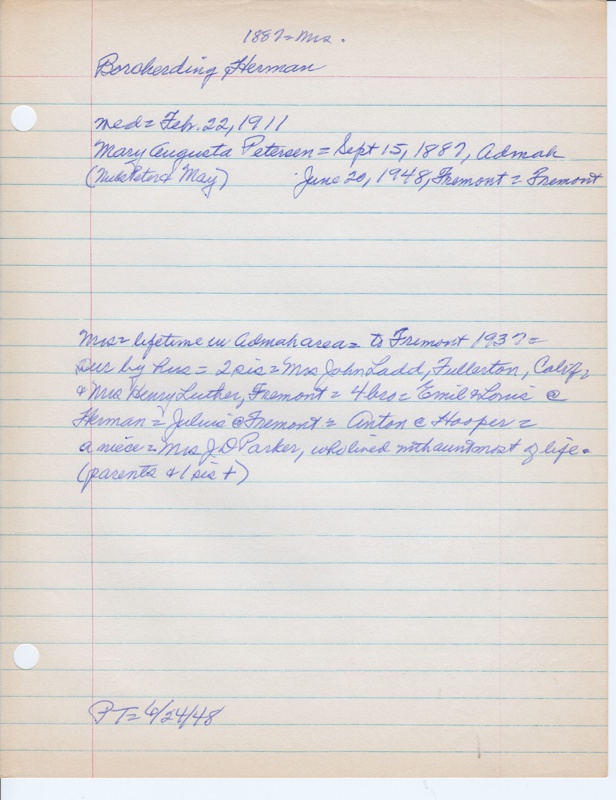 1887 = Mrs.
Borcherding Herman
med = Feb. 22, 1911
Mary Augusta Petersen = Sept 15, 1887, Admah
( Peter & May) June 20, 1948, Fremont = Fremont
Mrs = lifetime in Admah area = to Fremont 1937 =
sur by hus = 2 sis = Mrs John Ladd, Fullerton, Calif,
& Mrs Henry Luther, Fremont = 4 bro = Emil & Louis @
Herman = Julius @ Fremont = Anton @ Hooper =
a niece = Mrs J D Parker, who lived with aunt most of life.
(parents & 1 sis +)
PT = 6/24/48